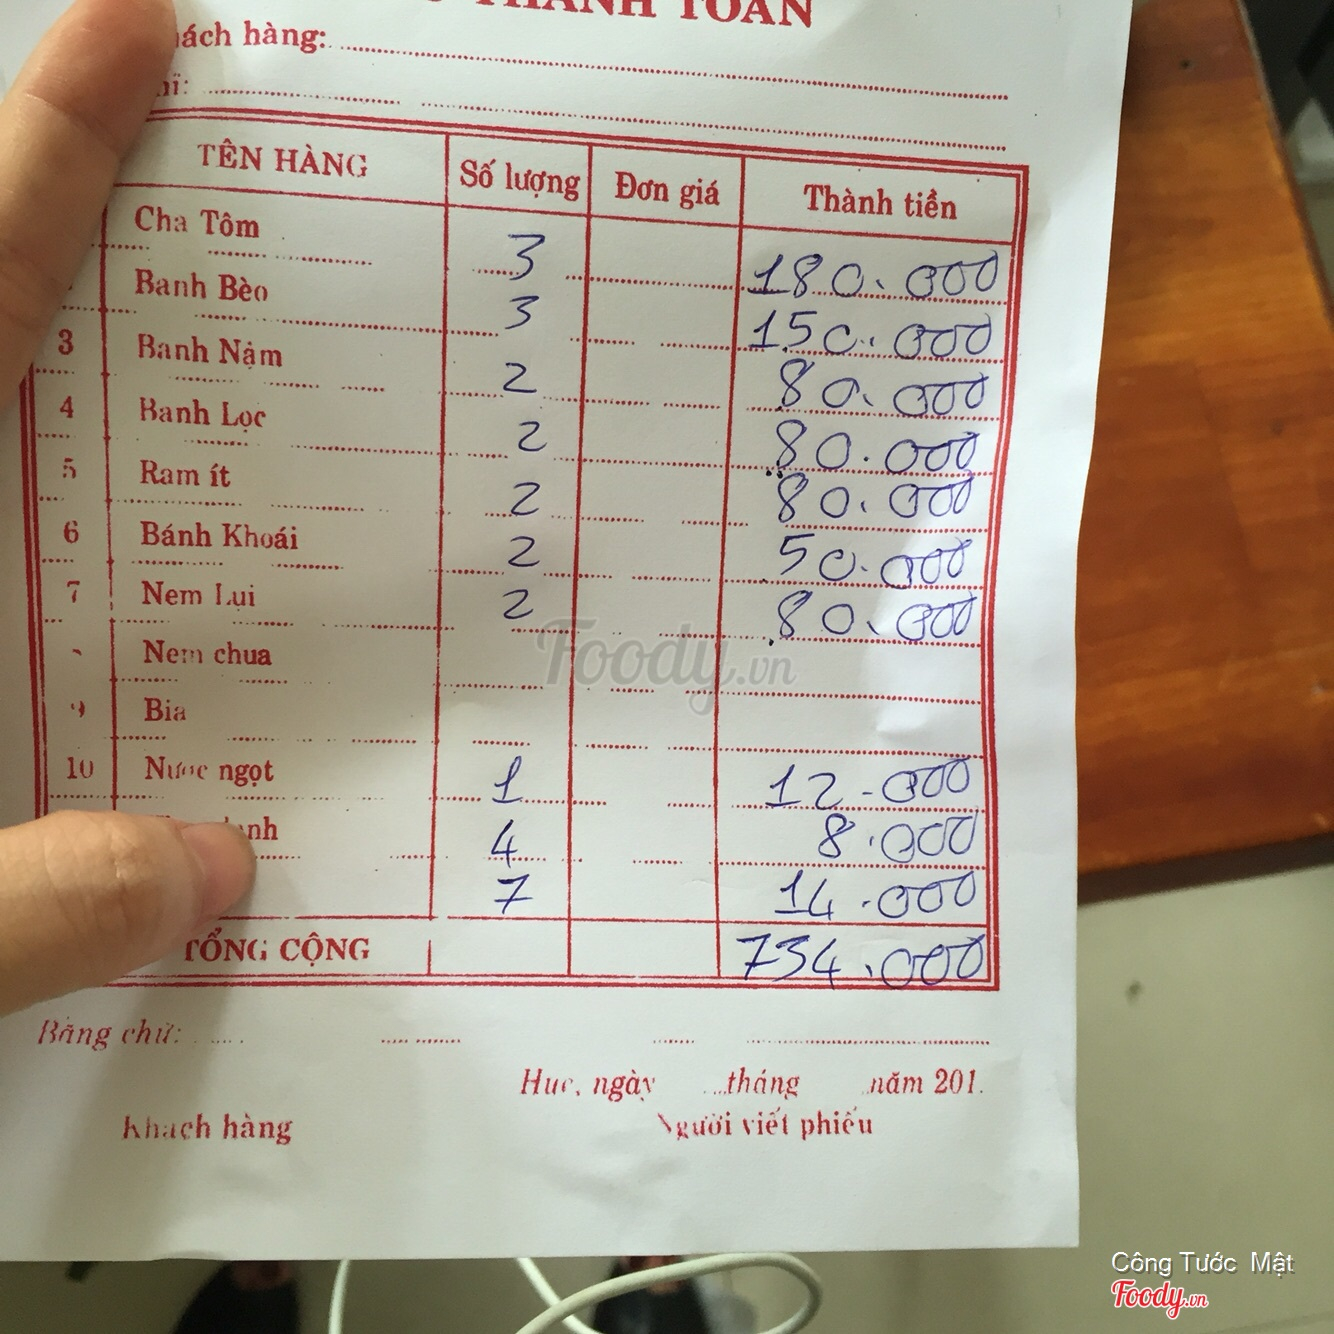 THANH TOÁN
hách hàng:
hỉ:
TÊN HÀNG Số lượng Đơn giá Thành tiền
Cha Tôm 3 180.000
Banh Bèo 3 150.000
3 Banh Nậm 2 80.000
4 Banh Lọc 2 80.000
5 Ram ít 2 80.000
6 Bánh Khoái 2 50.000
7 Nem Lụi 2 80.000
Nem chua
9 Bia
10 Nước ngọt 1 12.000
4 8.000
7 14.000
TỔNG CỘNG 734.000
Bằng chữ:
Huế, ngày tháng năm 201
Khach hàng Người viết phiếu
Foody.vn
Công Tước Mật
Foody.vn